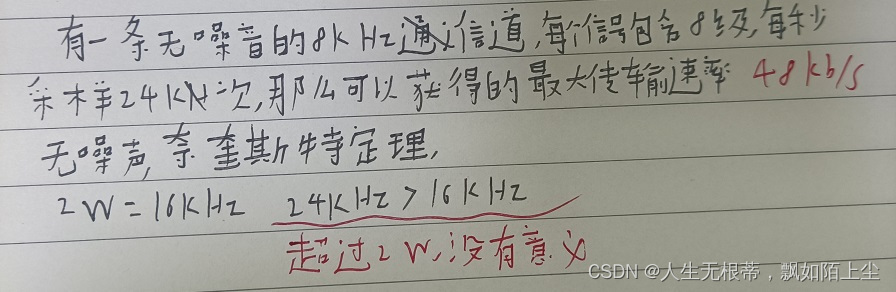 有一条无噪音的8kHz通义信道,每个信号包含8级,每秒
采样24KN次,那么可以获得的最大传输速率 48kb/s
无噪声,奈奎斯特定理,
2W=16KHz 24KHz>16KHz
超过2W,没有意义
CSDN @人生无根蒂,飘如陌上尘